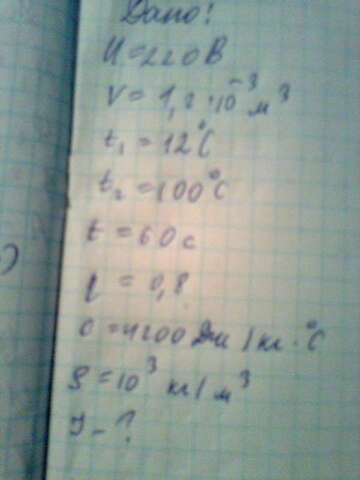 Дано!
U=220В
V=1,2·10⁻³ м³
t₁=12°С
t₂=100°С
t=60с
η=0,8
С=4200Дж/кг·°С
ρ=10³ кг/м³
J-?